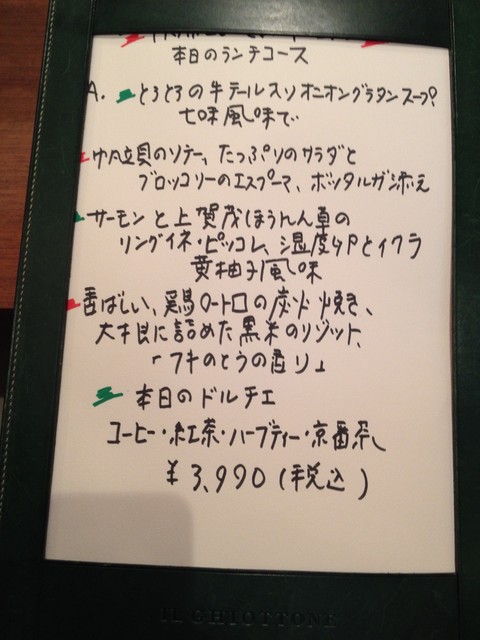 本日のランチコース
A. とろとろの牛テールスソ オニオングラタンスープ?
七味風味で
帆立貝のソテー、たっぷりのサラダと
ブロッコリーのエスプーマ、ボッタルガ添え
サーモンと上賀茂ほうれん草の
リングイネ・ピッコレ、湿度卵とイクラ
黄柚子風味
香ばしい、鶏ロートロの炭火焼き、
大根に詰めた黒米のリゾット、
「フキのとうの香り」
本日のドルチェ
コーヒー・紅茶・ハーブティー・京番茶
¥3,990(税込)
IL GHIOTTONE